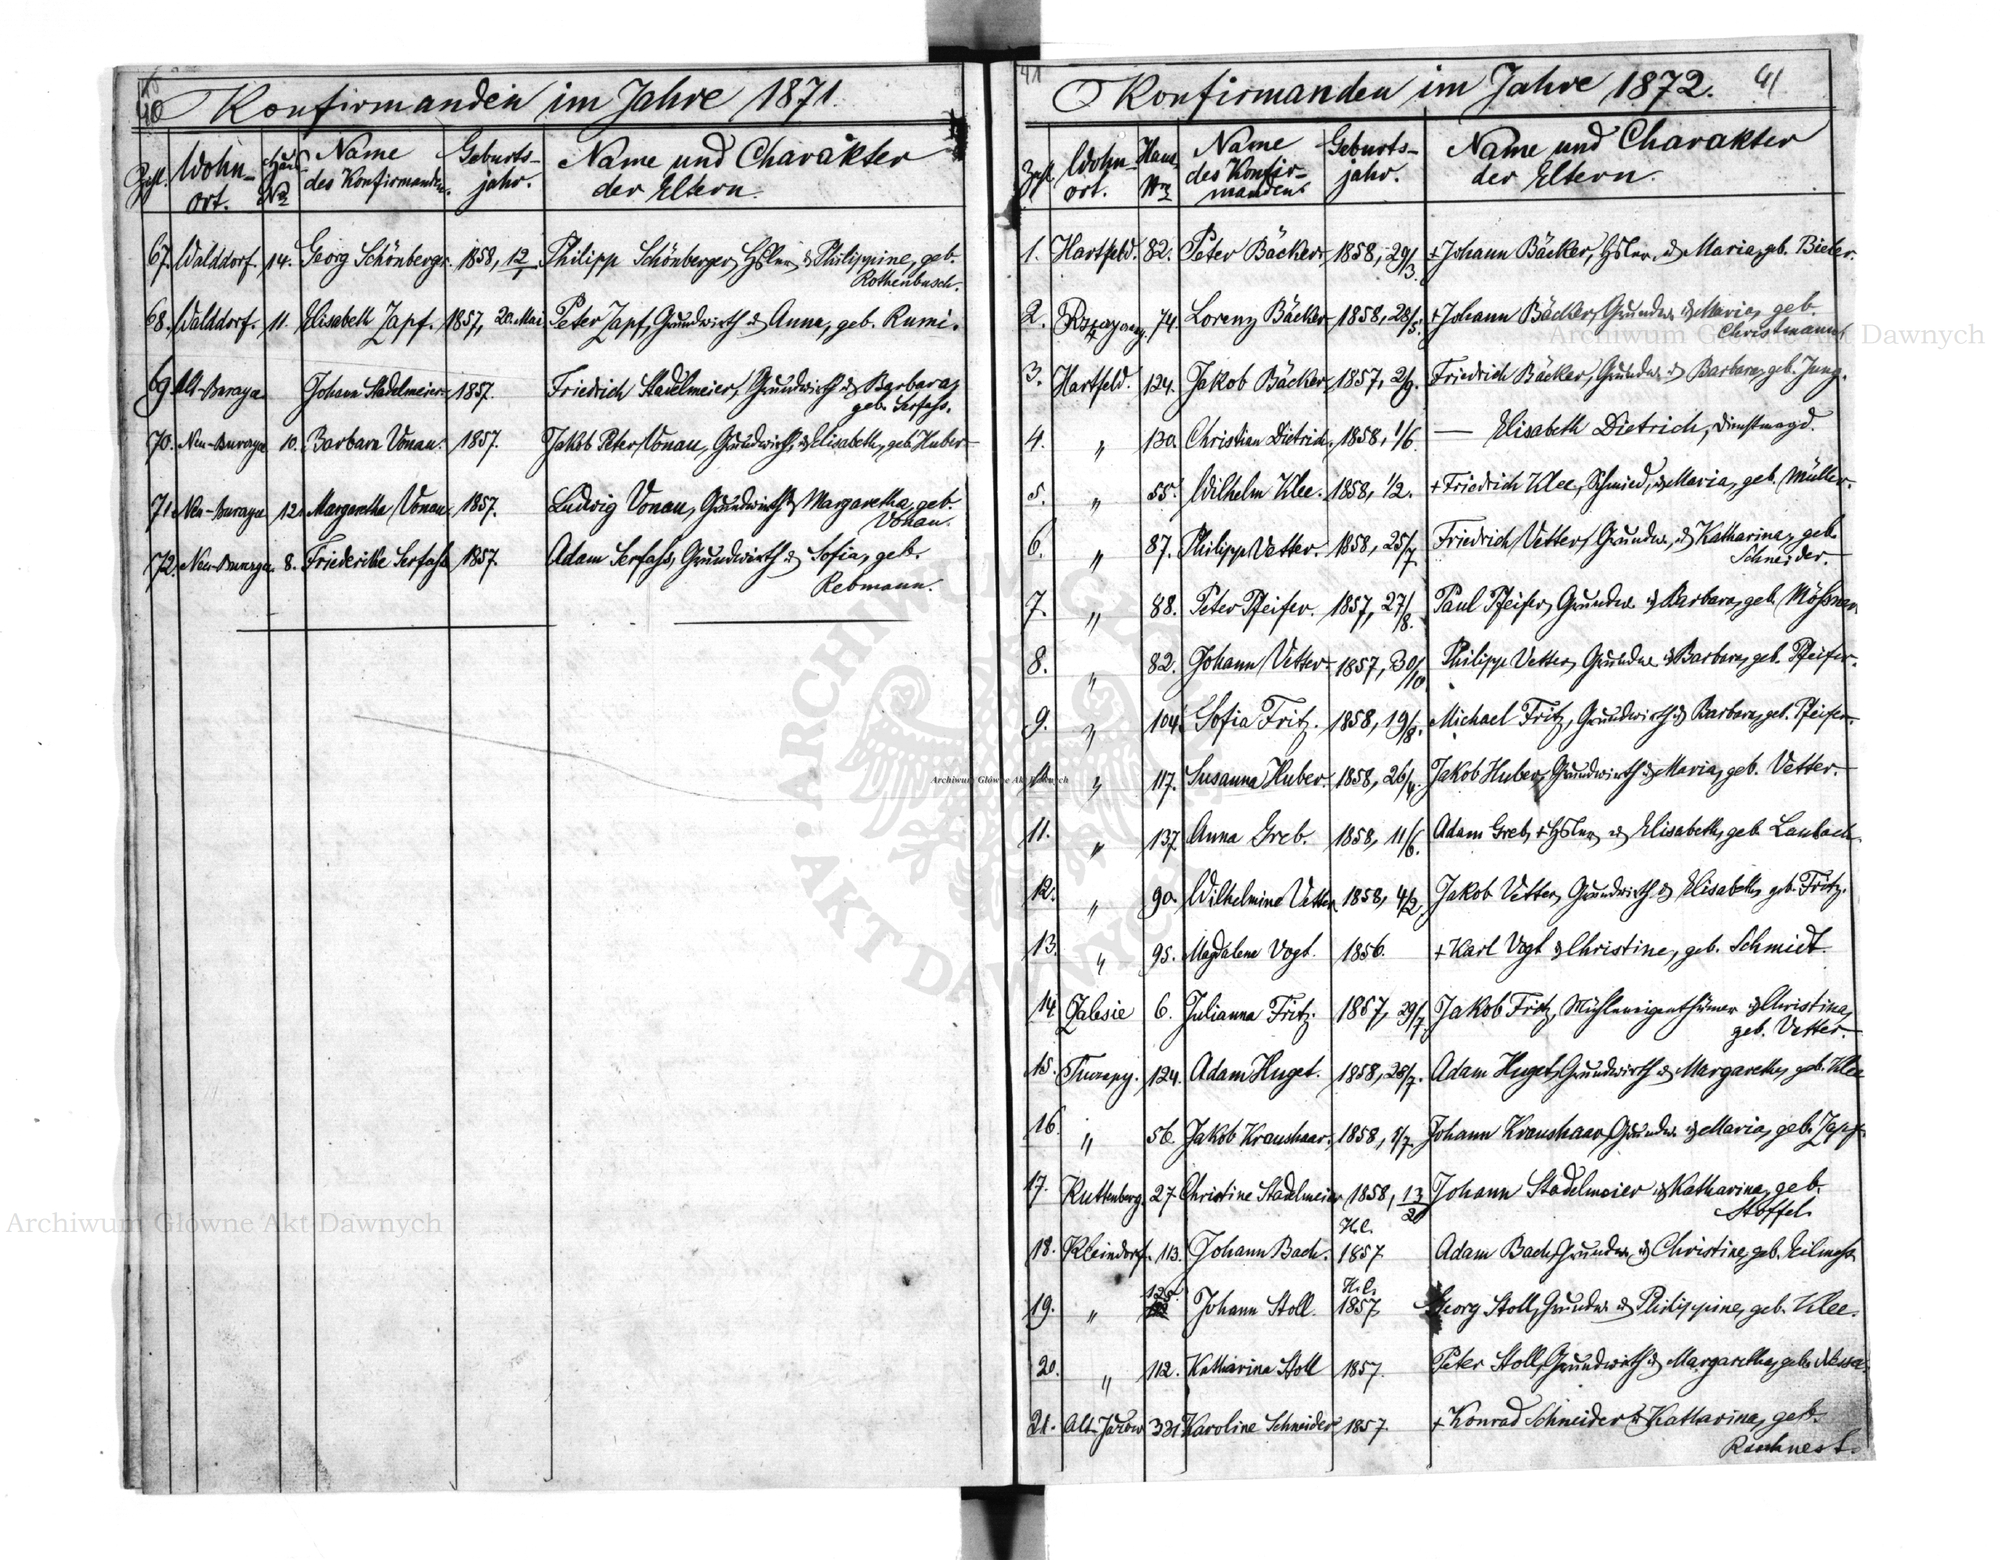 40
Konfirmanden im Jahre 1871.
Zahl. Wohn-ort. Haus Nr Name des Konfirmanden. Geburts-jahr. Name und Charakter der Eltern.
67. Walddorf. 14. Georg Schönberger. 1858, 12/ Philipp Schönberger, Hsler, & Philippine, geb.
Rothenbusch.
68. Walddorf. 11. Elisabeth Zapf. 1857, 20. Mai Peter Zapf, Grundwirth & Anna, geb. Rumi.
69. Alt-Buraya Johann Stadelmeier 1857. Friedrich Stadelmeier, Grundwirth & Barbara,
geb. Serfass.
70. Neu-Buraya 10. Barbara Vonau. 1857. Jakob Peter Vonau, Grundwirth, & Elisabeth, geb. Huber
71. Neu-Buraya 12. Margaretha Vonau 1857. Ludwig Vonau, Grundwirth & Margaretha, geb.
Vonau.
72. Neu-Buraya. 8. Friedericke Serfass 1857. Adam Serfass, Grundwirth & Sofia, geb.
Rebmann.
41
Konfirmanden im Jahre 1872. 41
Zahl. Wohn-ort. Haus Nr Name des Konfir-manden. Geburts-jahr. Name und Charakter der Eltern.
1. Hartfeld. 82. Peter Bäcker. 1858, 29/3. + Johann Bäcker, Hsler, & Maria, geb. Bieber.
2. 74. Lorenz Bäcker 1858, 28/5. + Johann Bäcker, Grundw. & Maria, geb.
Christmann
3. Hartfeld. 124. Jakob Bäcker 1857, 2/9. Friedrich Bäcker, Grundw. & Barbara, geb. Jung.
4. " 130. Christian Dietrich. 1858, 1/6. — Elisabeth Dietrich, Dienstmagd.
5. " 55. Wilhelm Klee. 1858, 1/2. + Friedrich Klee, Schmied, & Maria, geb. Müller.
6. " 87. Philipp Vetter. 1858, 25/7 Friedrich Vetter, Grundw., & Katharina, geb.
Schneider.
7. " 88. Peter Pfeifer. 1857, 27/8. Paul Pfeifer, Grundw. & Barbara, geb. Mößner.
8. " 82. Johann Vetter 1857, 30/10. Philipp Vetter, Grundw. & Barbara, geb. Pfeifer.
9. " 104. Sofia Fritz. 1858, 19/8. Michael Fritz, Grundwirth & Barbara, geb. Pfeifer.
10. " 117. Susanna Huber. 1858, 26/4. Jakob Huber, Grundwirth & Maria, geb. Vetter.
11. " 137. Anna Greb. 1858, 11/6. Adam Greb, + Hsler & Elisabeth, geb. Laubach.
12. " 90. Wilhelmine Vetter 1858, 4/2. Jakob Vetter, Grundwirth & Elisabeth, geb. Fritz.
13. " 95. Magdalene Vogt. 1856. + Karl Vogt & Christine, geb. Schmidt.
14. Zalesie 6. Julianna Fritz. 1857, 29/7 Jakob Fritz, Mühleneigenthümer & Christina,
geb. Vetter.
15. Tuczapy. 124. Adam Huget. 1858, 28/7. Adam Huget, Grundwirth & Margareth, geb. Klee
16. " 56. Jakob Kraushaar. 1858, 5/7. Johann Kraushaar, Grundw. & Maria, geb. Zapf.
17. Kuttenberg. 27. Christine Stadelmeier 1858, 13/ Johann Stadelmeier & Katharina, geb.
Stoffel.
18. Kleindorf. 113. Johann Bach. H.C. 1857 Adam Bach, Grundw. & Christine, geb.
19. " 125. Johann Stoll. H.C. 1857 Georg Stoll, Grundw. & Philippine, geb. Klee.
20. " 112. Katharina Stoll 1857. Peter Stoll, Grundwirth & Margaretha, geb.
21. Alt-Jazow 331 Karoline Schneider 1857. + Konrad Schneider & Katharina, geb.
Archiwum Główne Akt Dawnych
Archiwum Główne Akt Dawnych
Archiwum Główne Akt Dawnych
ARCHIWUM GŁÓWNE • AKT DAWNYCH •